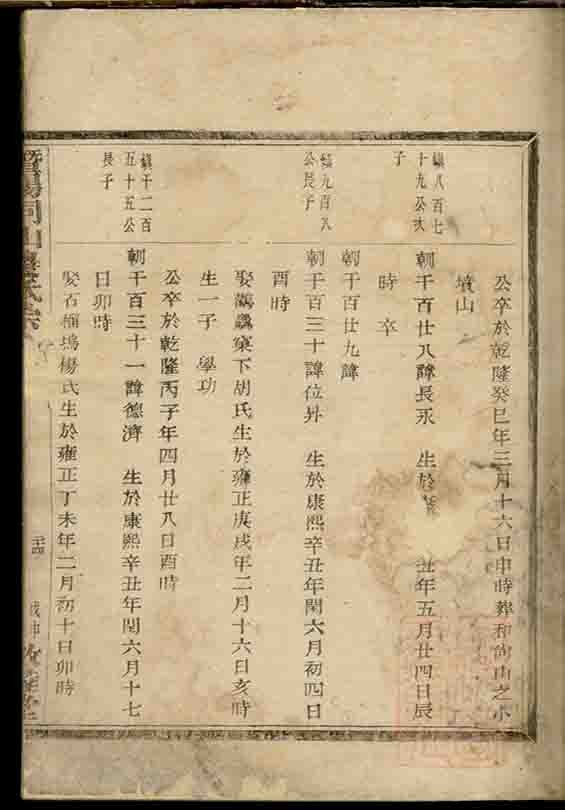 公卒於乾隆癸巳年三月十六日申時葬和尚山之小
墳山
朝千百廿八諱長永 生於 丑年五月廿四日辰
時 卒
鎮八百七
十九公次
子
朝千百廿九諱
朝千百三十諱位昇 生於康熙辛丑年閏六月初四日
酉時
鎮九百八
公長子
娶 下胡氏生於雍正庚戌年二月十六日亥時
生一子 學功
公卒於乾隆丙子年四月廿八日酉時
朝千百三十一諱德濟 生於康熙辛丑年閏六月十七
日卯時
鎮千二百
五十五公
長子
娶石 塢楊氏生於雍正丁未年二月初十日卯時
暨陽同山 氏宗
戊申